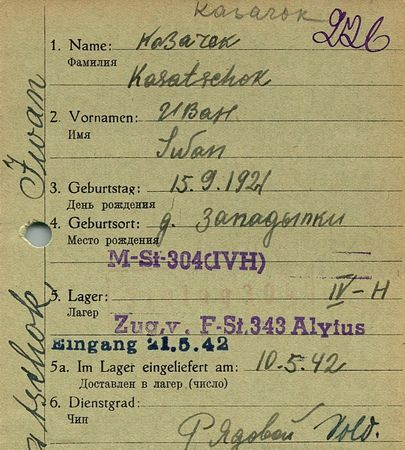 Казачок
226
1. Name: Козачек
Фамилия
Kosatschok
2. Vornamen: Иван
Имя
Iwan
3. Geburtstag: 15.9.1921
День рождения
4. Geburtsort: д. Западынки
Место рождения
M-St-304(IVH)
5. Lager: IV-H
Лагер
Zug.v. F-St.343 Alytus
Eingang 21.5.42
5a. Im Lager eingeliefert am: 10.5.42
Доставлен в лагер (число)
6. Dienstgrad:
Чин
Рядовой Sold.
atschok Iwan